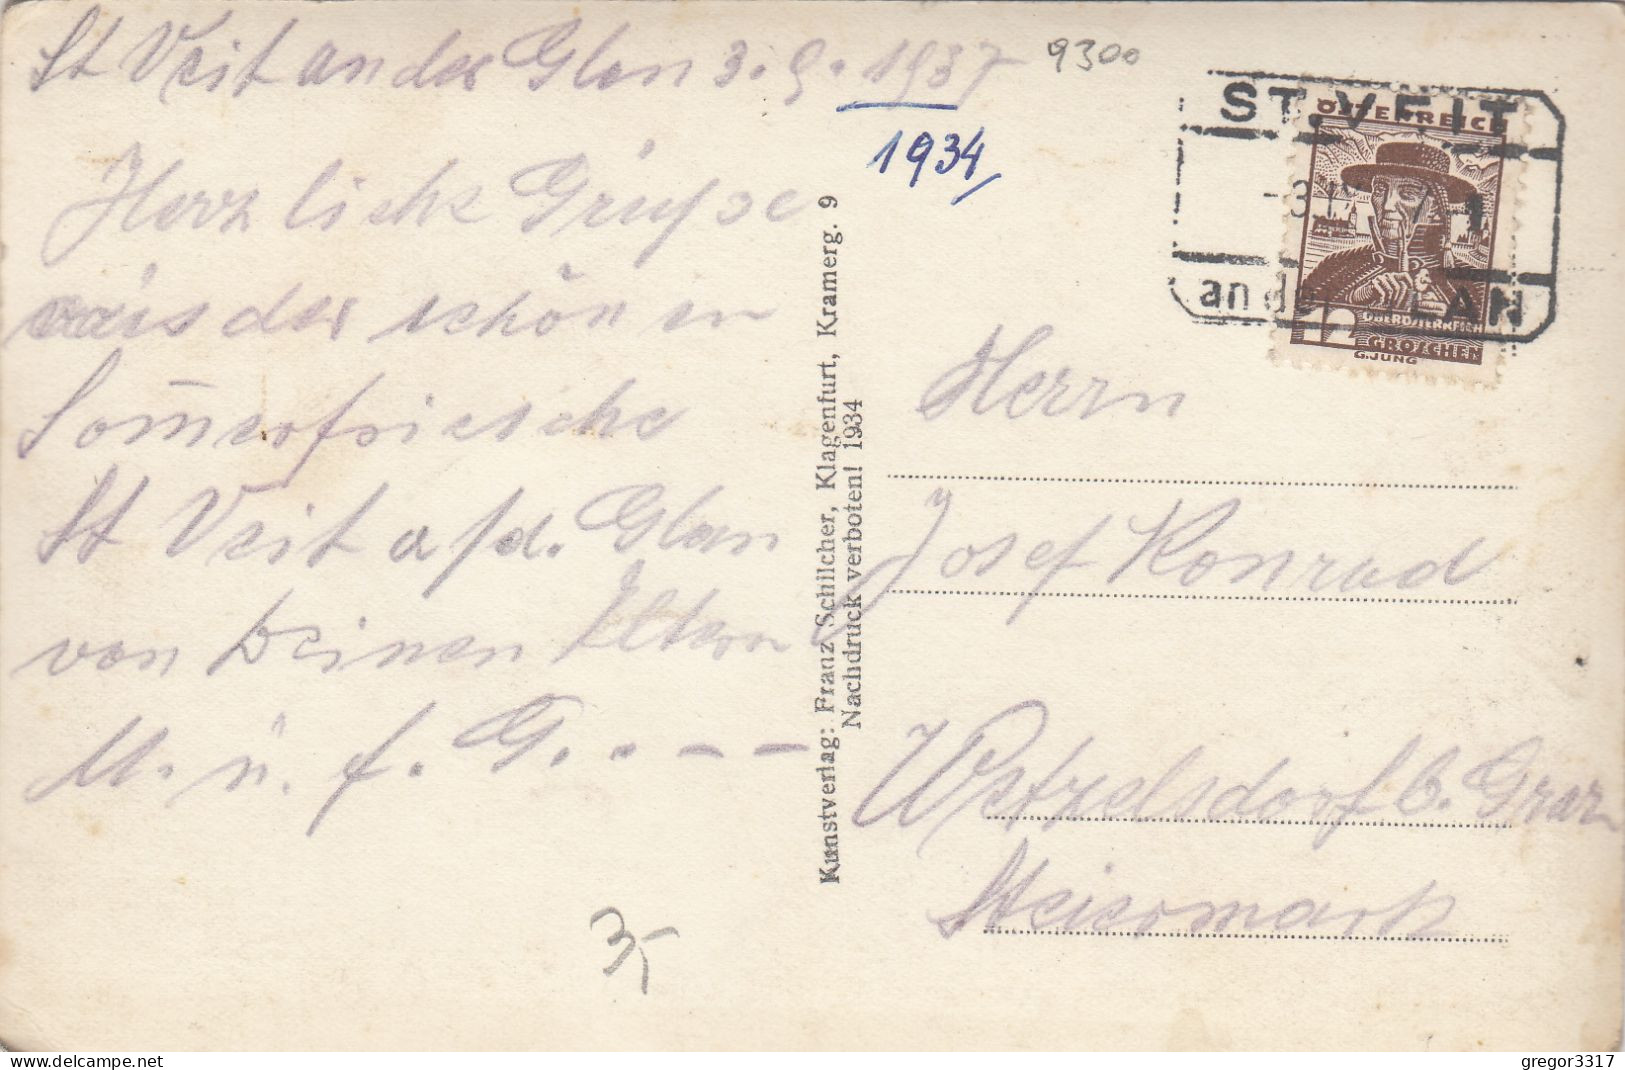 St Veit an der Glan 3. 9. 1937
9300
1934
Herzliche Grüsse
aus der schönen
Somerfrische
St Veit a/d. Glan
von Deinen Eltern
M. u. f. G. . - - -
3,-
Kunstverlag: Franz Schilcher, Klagenfurt, Kramerg. 9
Nachdruck verboten! 1934
ST. VEIT
-3.IX. 7-1
an der GLAN
ÖSTERREICH
12
OBERÖSTERREICH
GROSCHEN
G.JUNG
Herrn
Josef Konrad
Wetzelsdorf b. Graz
Steiermark
delcampe.net
gregor3317